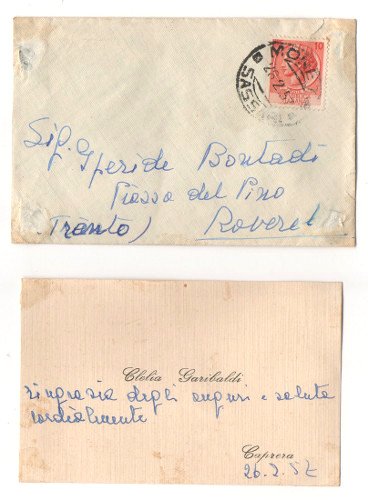 Sig. Iperide Bontadi
Piazza del Pino
(Tranto) Roveret
Clelia Garibaldi
ringrazia degli auguri e saluta
cordialmente
Caprera
26.2.57